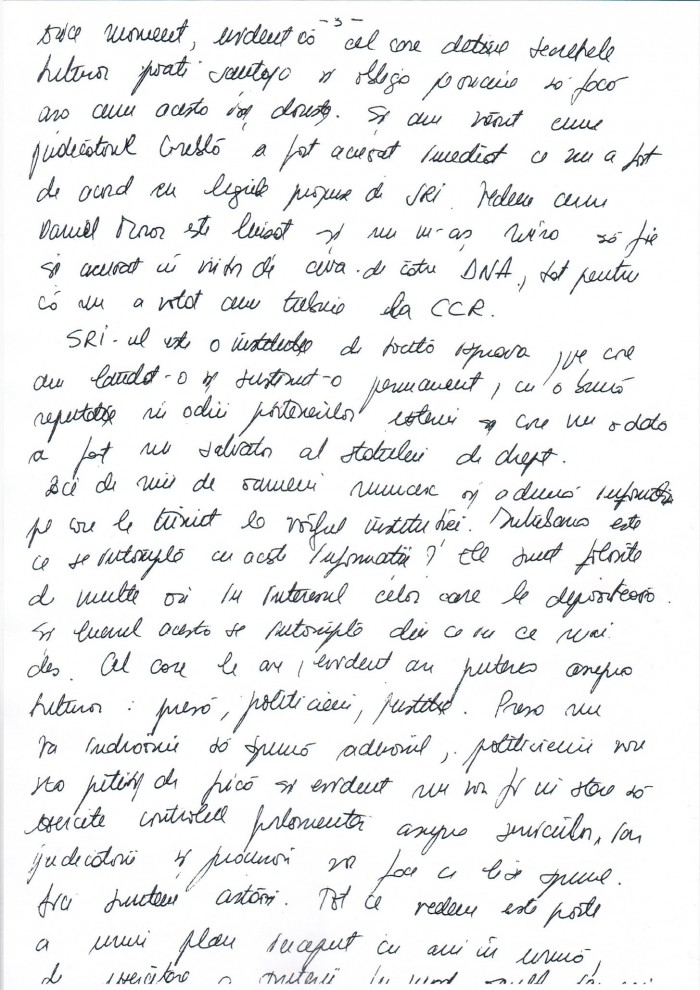 -3-
orice moment, evident că cel care deține secretele
tuturor poate șantaja și obliga pe oricine să facă
așa cum acesta își dorește. Și am văzut cum
judecătorul Greblă a fost acuzat imediat ce nu a fost
de acord cu legile propuse de SRI. Vedem cum
Daniel Morar este linșat și nu m-aș mira să fie
și acuzat în viitor de ceva de către DNA, tot pentru
că nu a votat cum trebuie la CCR.
SRI-ul este o instituție de toată isprava, pe care
am lăudat-o și susținut-o permanent, cu o bună
reputație în ochii partenerilor externi și care nu o dată
a fost un salvator al statului de drept.
Zeci de mii de oameni muncesc și adună informații
pe care le trimit la vârful instituției. Întrebarea este
ce se întâmplă cu aceste informații? Ele sunt folosite
de multe ori în interesul celor care le depozitează.
Și lucrul acesta se întâmplă din ce în ce mai
des. Cel care le are, evident are puterea asupra
tuturor: presă, politicieni, justiție. Presa nu
va îndrăzni să spună adevărul, politicienii vor
sta pitiți de frică și evident nu vor fi în stare să
exercite controlul parlamentar asupra serviciilor, iar
judecătorii și procurorii vor face ce li se spune.
Aici suntem astăzi. Tot ce vedem este parte
a unui plan început cu ani în urmă,
de exercitare a puterii în